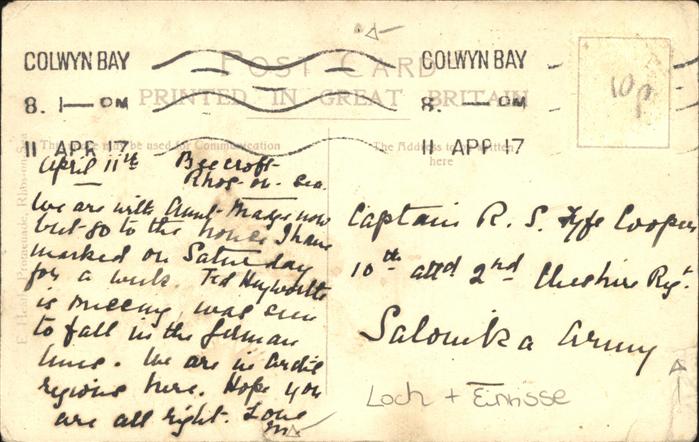 COLWYN BAY
8. 1 — PM
11 APR 17
COLWYN BAY
8. — PM
11 APR 17
POST CARD
PRINTED IN GREAT BRITAIN
may be used for Communication
The Address to be written
here
10p
April 11th Beecroft
Rhos-on-Sea.
We are with Aunt Madge now
but go to the house I have
marked on Saturday
for a week. Ted Heyworth
is missing, was seen
to fall in the German
lines. We are in Arctic
regions here. Hope you
are all right. Love
M
Captain R. S. Fyfe Cooper
10th attd 2nd Cheshire Regt.
Salonika Army
Loch +
Promenade, Rhos-on-Sea